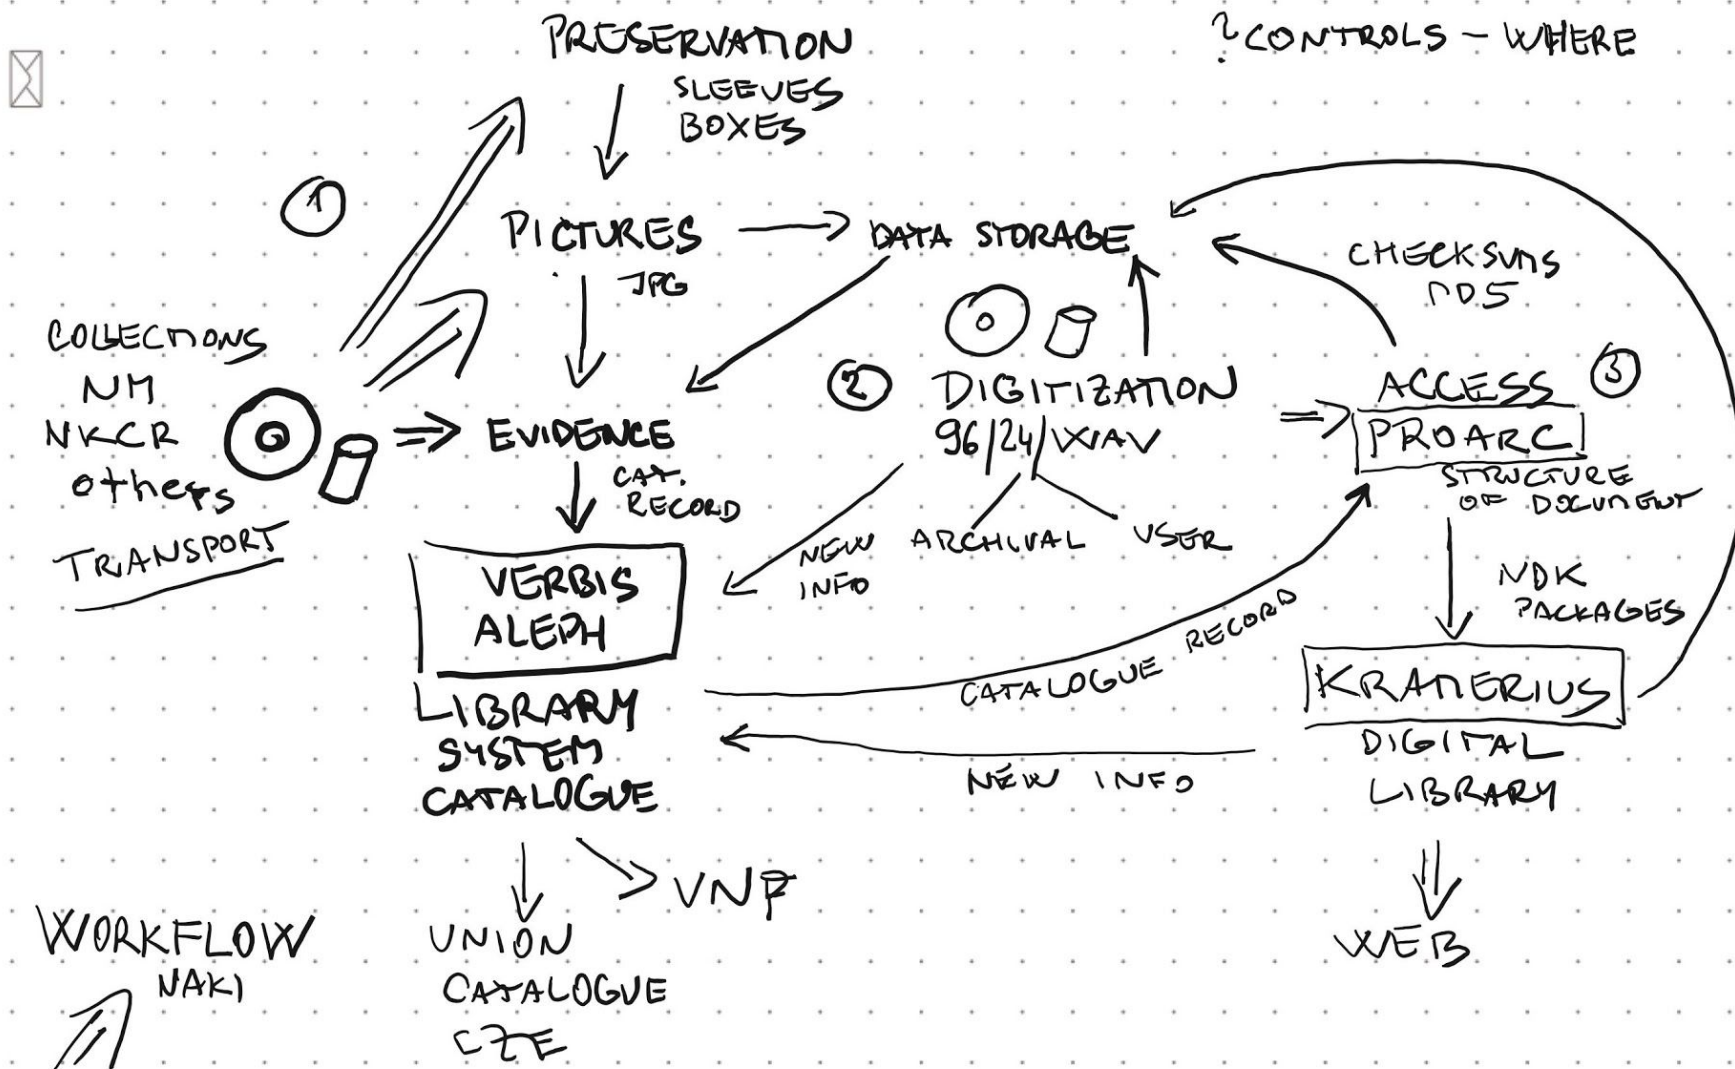 PRESERVATION
SLEEVES
BOXES
? CONTROLS – WHERE
1
PICTURES
JPG
DATA STORAGE
CHECKSUMS
MD5
COLLECTIONS
NM
NKCR
others
TRANSPORT
EVIDENCE
CAT.
RECORD
2
DIGITIZATION
96/24/WAV
ARCHIVAL
USER
NEW
INFO
3
ACCESS
PROARC
STRUCTURE
OF DOCUMENT
NDK
PACKAGES
VERBIS
ALEPH
LIBRARY
SYSTEM
CATALOGUE
CATALOGUE RECORD
NEW INFO
KRAMERIUS
DIGITAL
LIBRARY
WEB
VNF
UNION
CATALOGUE
CZE
WORKFLOW
NAKI